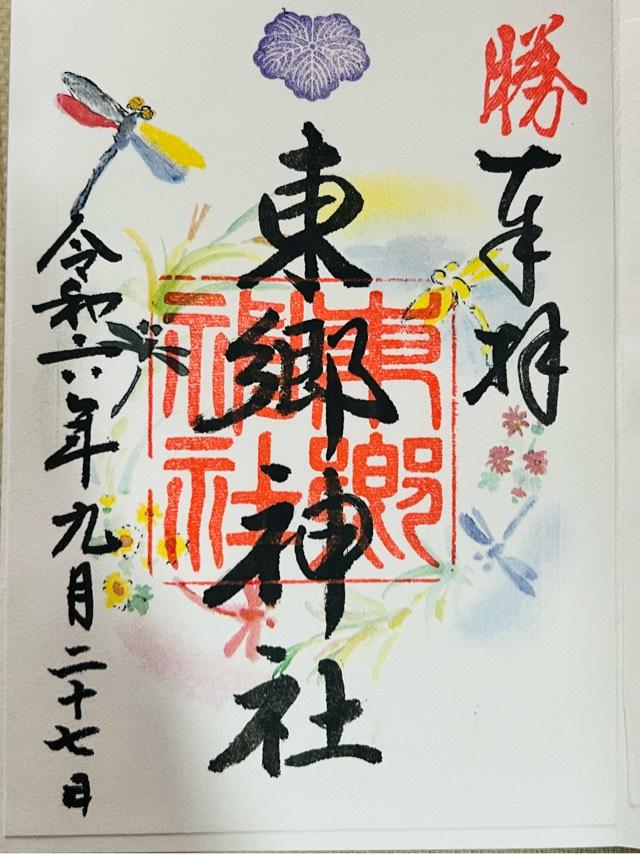 勝
奉拝
東郷神社
東郷神社
令和六年九月二十七日